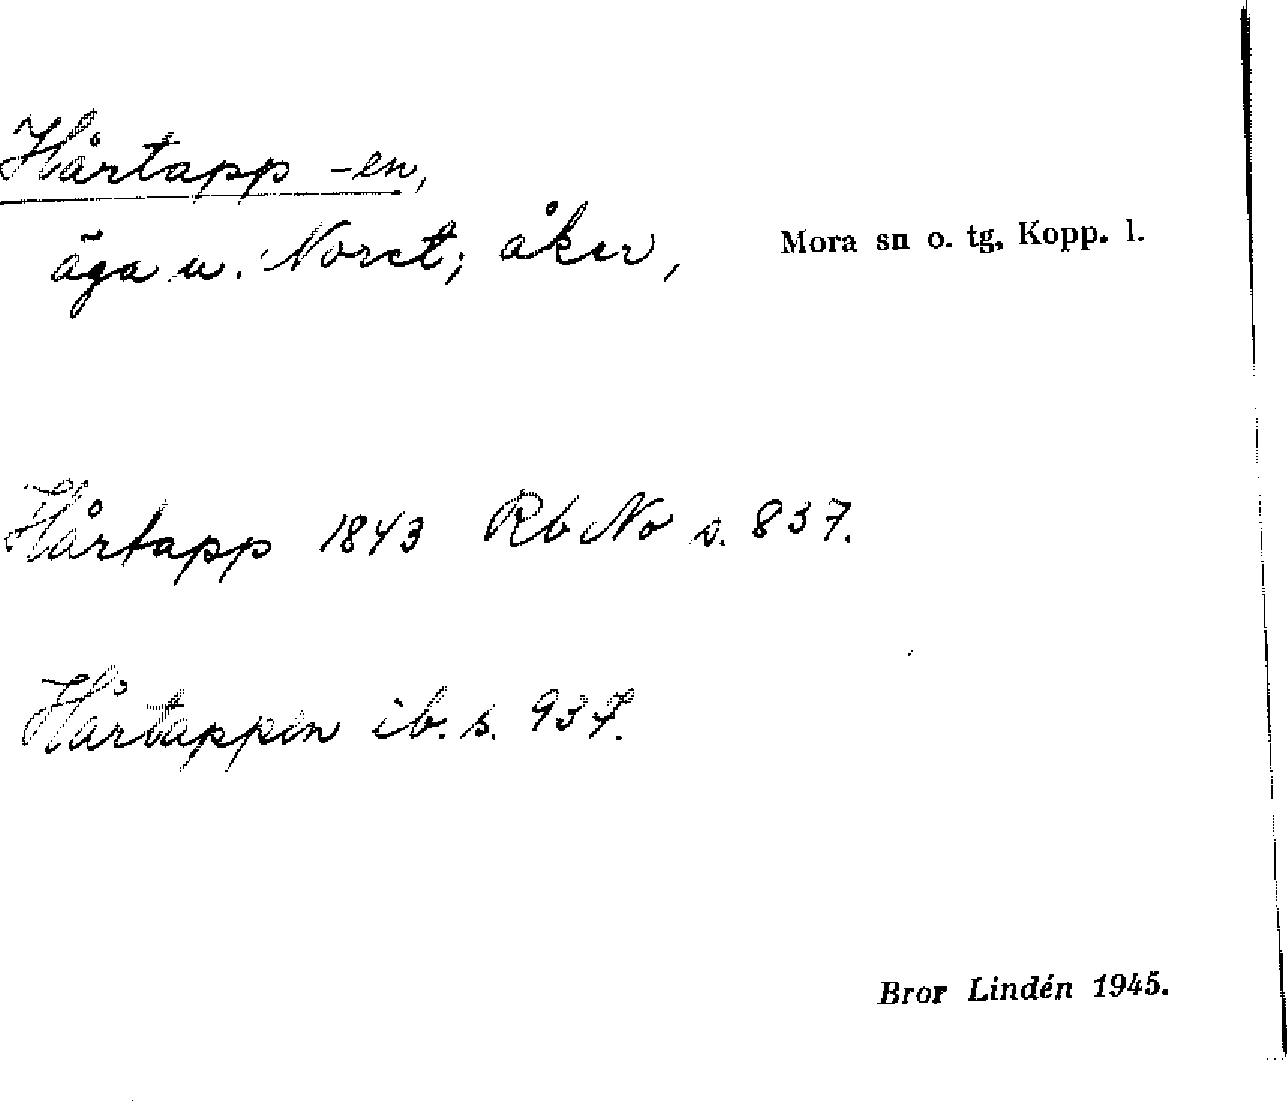 Hårtapp -en,
äga u. Noret; åker,
Mora sn o. tg, Kopp. l.
Hårtapp 1843 Rb No s. 837.
Hårtappen ib. s. 937.
Bror Lindén 1945.